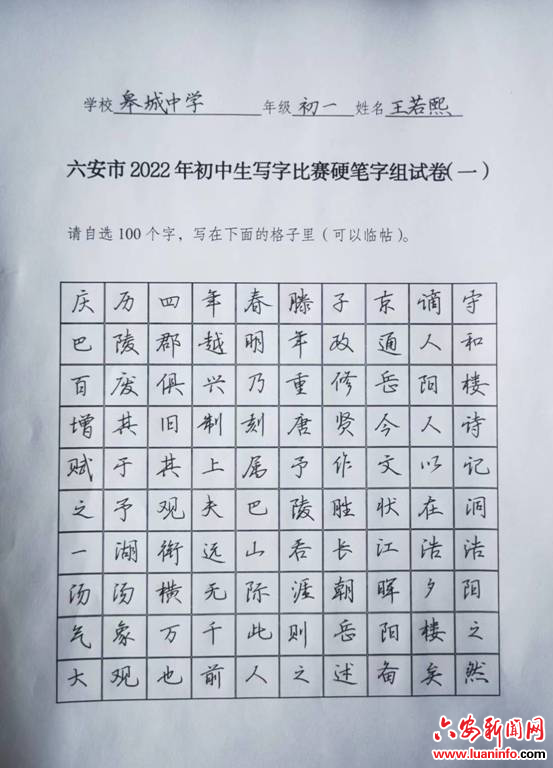 学校 皋城中学 年级 初一 姓名 王若熙
六安市2022年初中生写字比赛硬笔字组试卷(一)
请自选100个字,写在下面的格子里(可以临帖)。
庆历四年春滕子京谪守
巴陵郡越明年政通人和
百废俱兴乃重修岳阳楼
增其旧制刻唐贤今人诗
赋于其上属予作文以记
之予观夫巴陵胜状在洞
一湖衔远山吞长江浩浩
汤汤横无际涯朝晖夕阳
气象万千此则岳阳楼之
大观也前人之述备矣然
六安新闻网
www.luaninfo.com